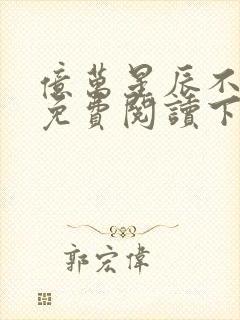 億萬星辰不
免費閱讀下
郭宏偉